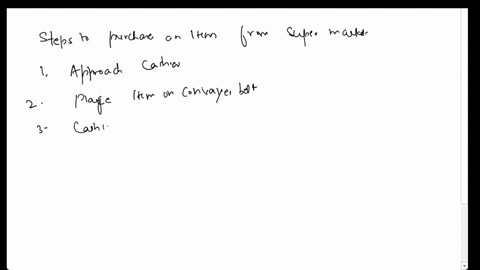 Steps to purchase an Item from Super market
1. Approach Cashier
2. Place Item on Conveyer belt
3- Cashi